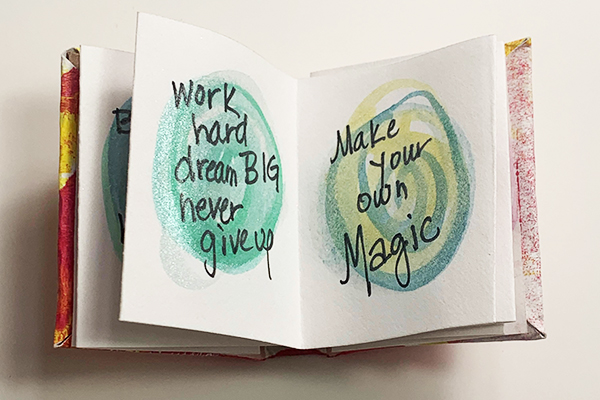 Work
hard
dream BIG
never
give up
Make
your
own
Magic